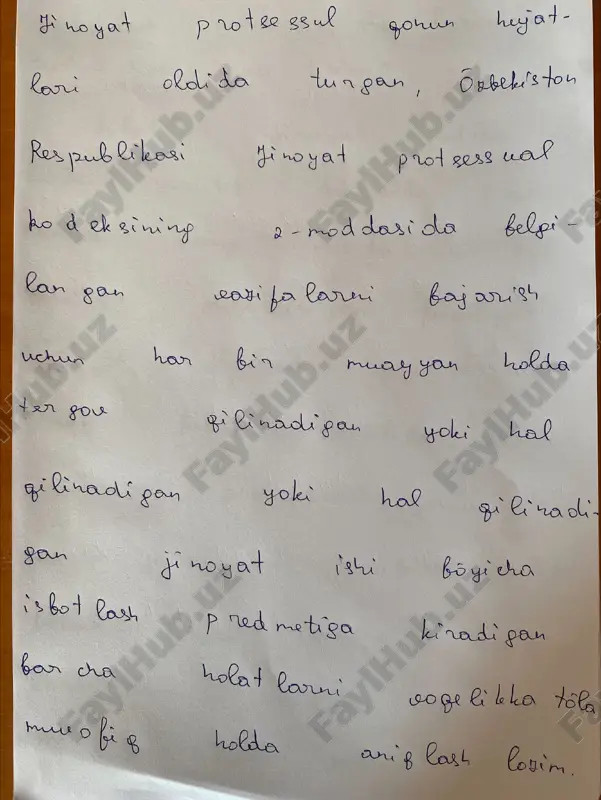 Jinoyat protsessul qonun hujat-
lari oldida turgan, Özbekiston
Respublikasi Jinoyat protsessual
kodeksining 2-moddasida belgi-
langan vazifalarni bajarish
uchun har bir muayyan holda
tergov qilinadigan yoki hal
qilinadigan yoki hal qilinadi-
gan jinoyat ishi böyicha
isbotlash predmetiga kiradigan
barcha holatlarni voqelikka töla
muvofiq holda aniqlash lozim.
FaylHub.uz
FaylHub.uz
FaylHub.uz
FaylHub.uz
FaylHub.uz
FaylHub.uz